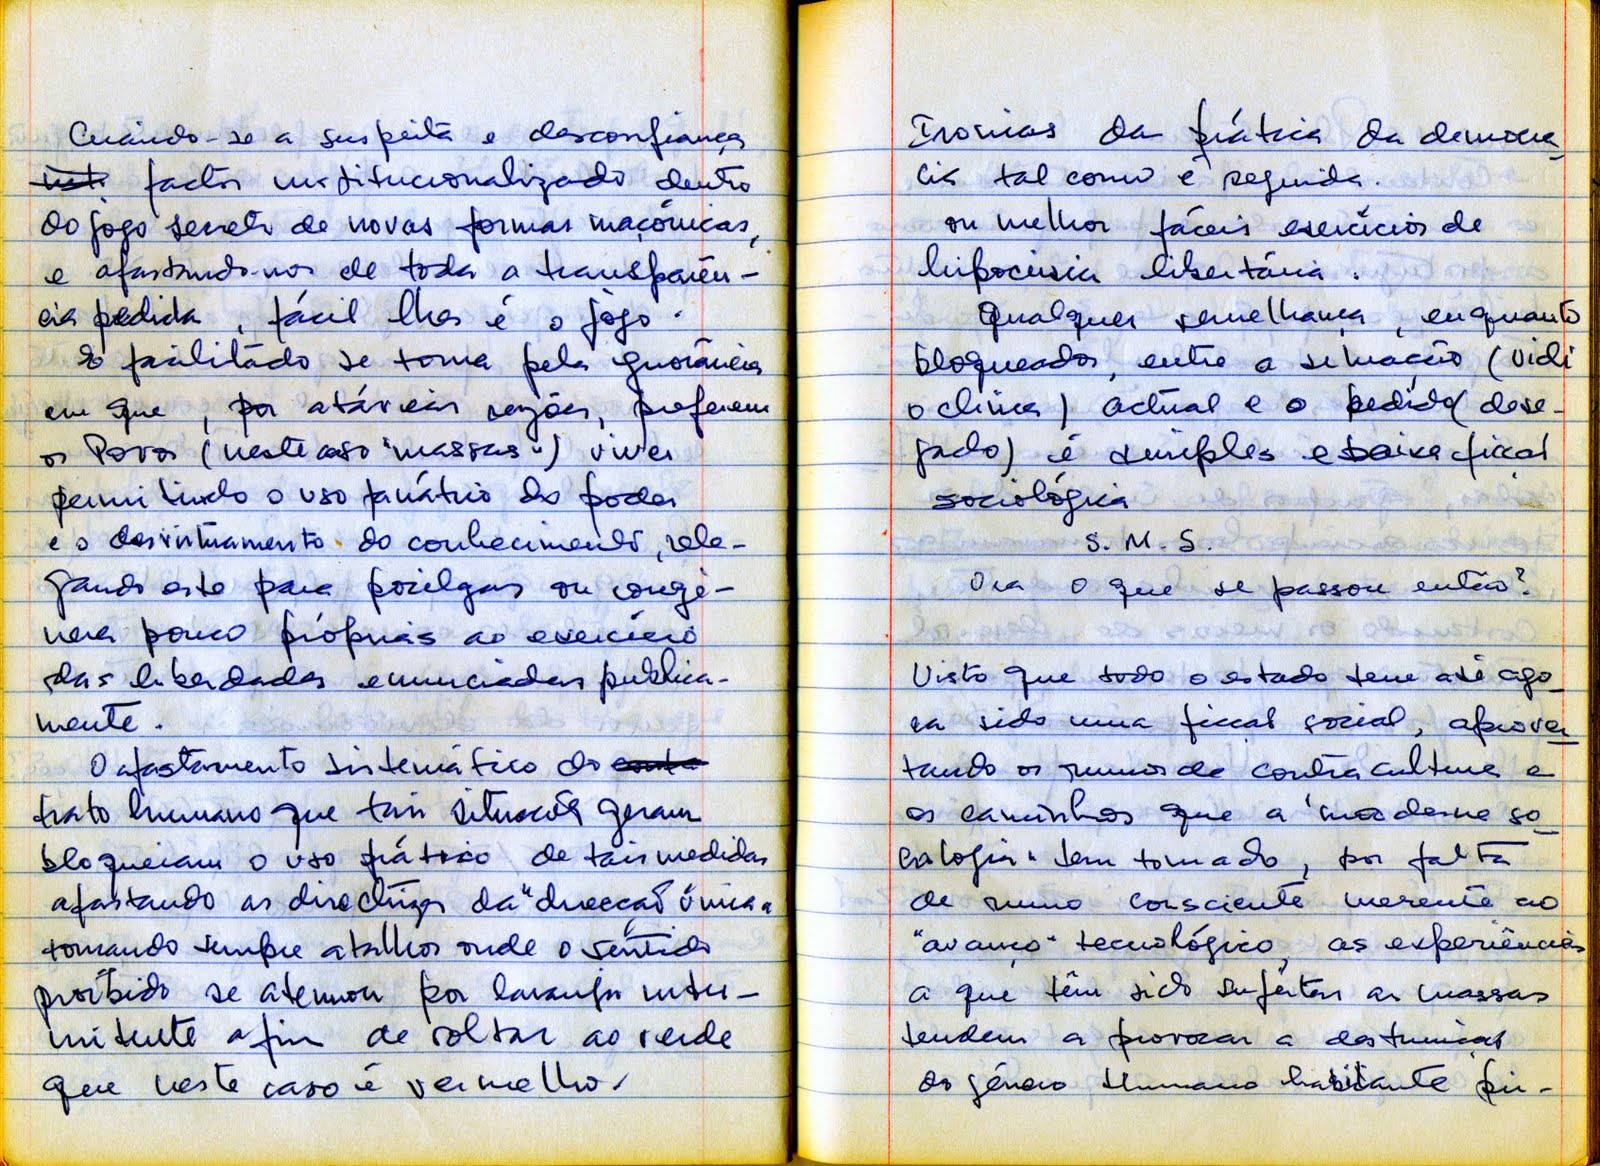 Criando-se a suspeita e desconfiança
factor institucionalizado dentro
do jogo secreto de novas formas maçónicas,
e afastando-nos de toda a transparên-
cia pedida, fácil lhes é o jogo.
facilitado se torna pela ignorância
em que, por atávicas razões, preferem
os Povos (neste caso "massas") viver
permitindo o uso fanático do poder
e o desvirtuamento do conhecimento, rele-
gando este para pocilgas ou congé-
neres pouco próprias ao exercício
das liberdades enunciadas publica-
mente.
O afastamento sistemático do
trato humano que tais situações geram
bloqueiam o uso prático de tais medidas
afastando as directrizes da "direcção única"
tomando sempre atalhos onde o sentido
proíbido se atenuou por laranja inter-
mitente afim de voltar ao verde
que neste caso é vermelho.
Ironias da prática da democra_
cia tal como é seguida.
ou melhor fáceis exercícios de
hipocrisia libertária.
Qualquer semelhança, enquanto
bloqueados, entre a situação (vidi
o clima) actual e o pedido (dese-
jado) é simples e baixa ficção
sociológica
S. M. S.
Ora o que se passou então?
Visto que todo o estado tem até ago_
ra sido uma ficcal social, aprovei_
tando os rumos de contracultura e
os caminhos que a "moderna so_
ciologia" tem tomado, por falta
de rumo consciente inerente ao
"avanço" tecnológico, as experiências
a que têm sido sujeitas as massas
tendem a provocar a destruição
do género Humano habitante